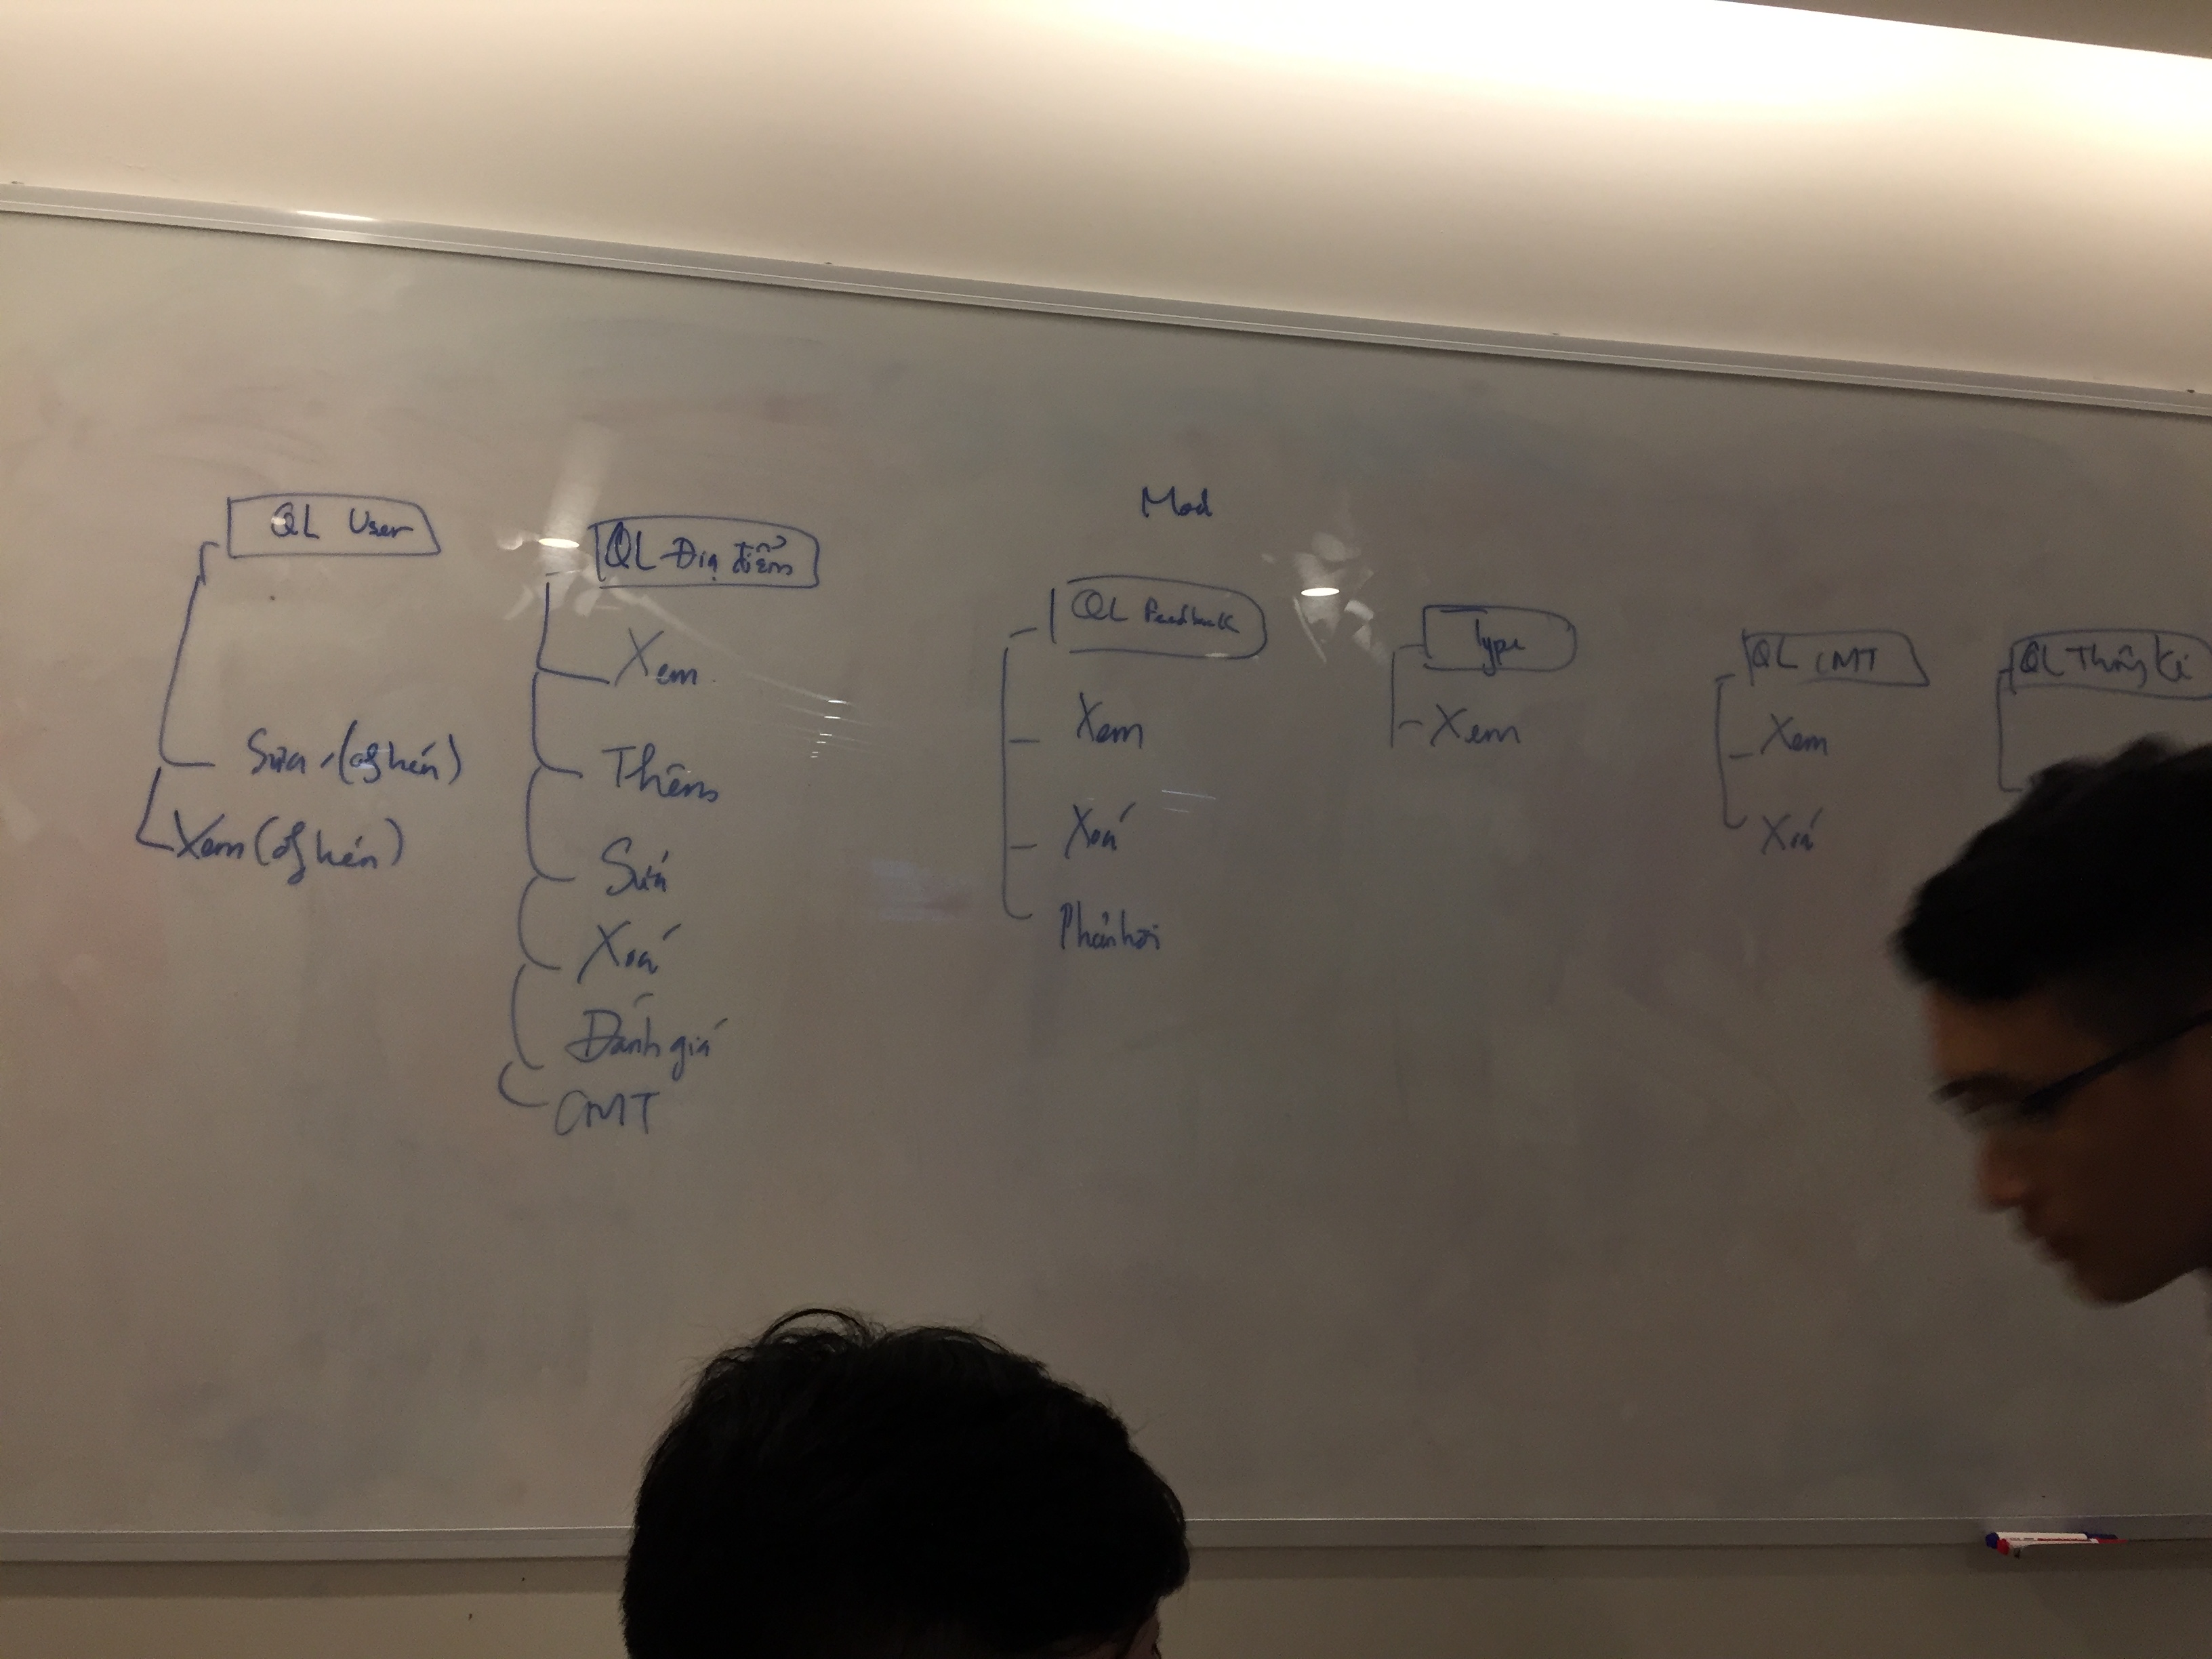 Mod
QL User
Sửa (
Xem (
QL Địa điểm
Xem
Thêm
Sửa
Xoá
Đánh giá
CMT
QL Feedback
Xem
Xoá
Phản hồi
Type
Xem
QL CMT
Xem
Xoá
QL Thống kê